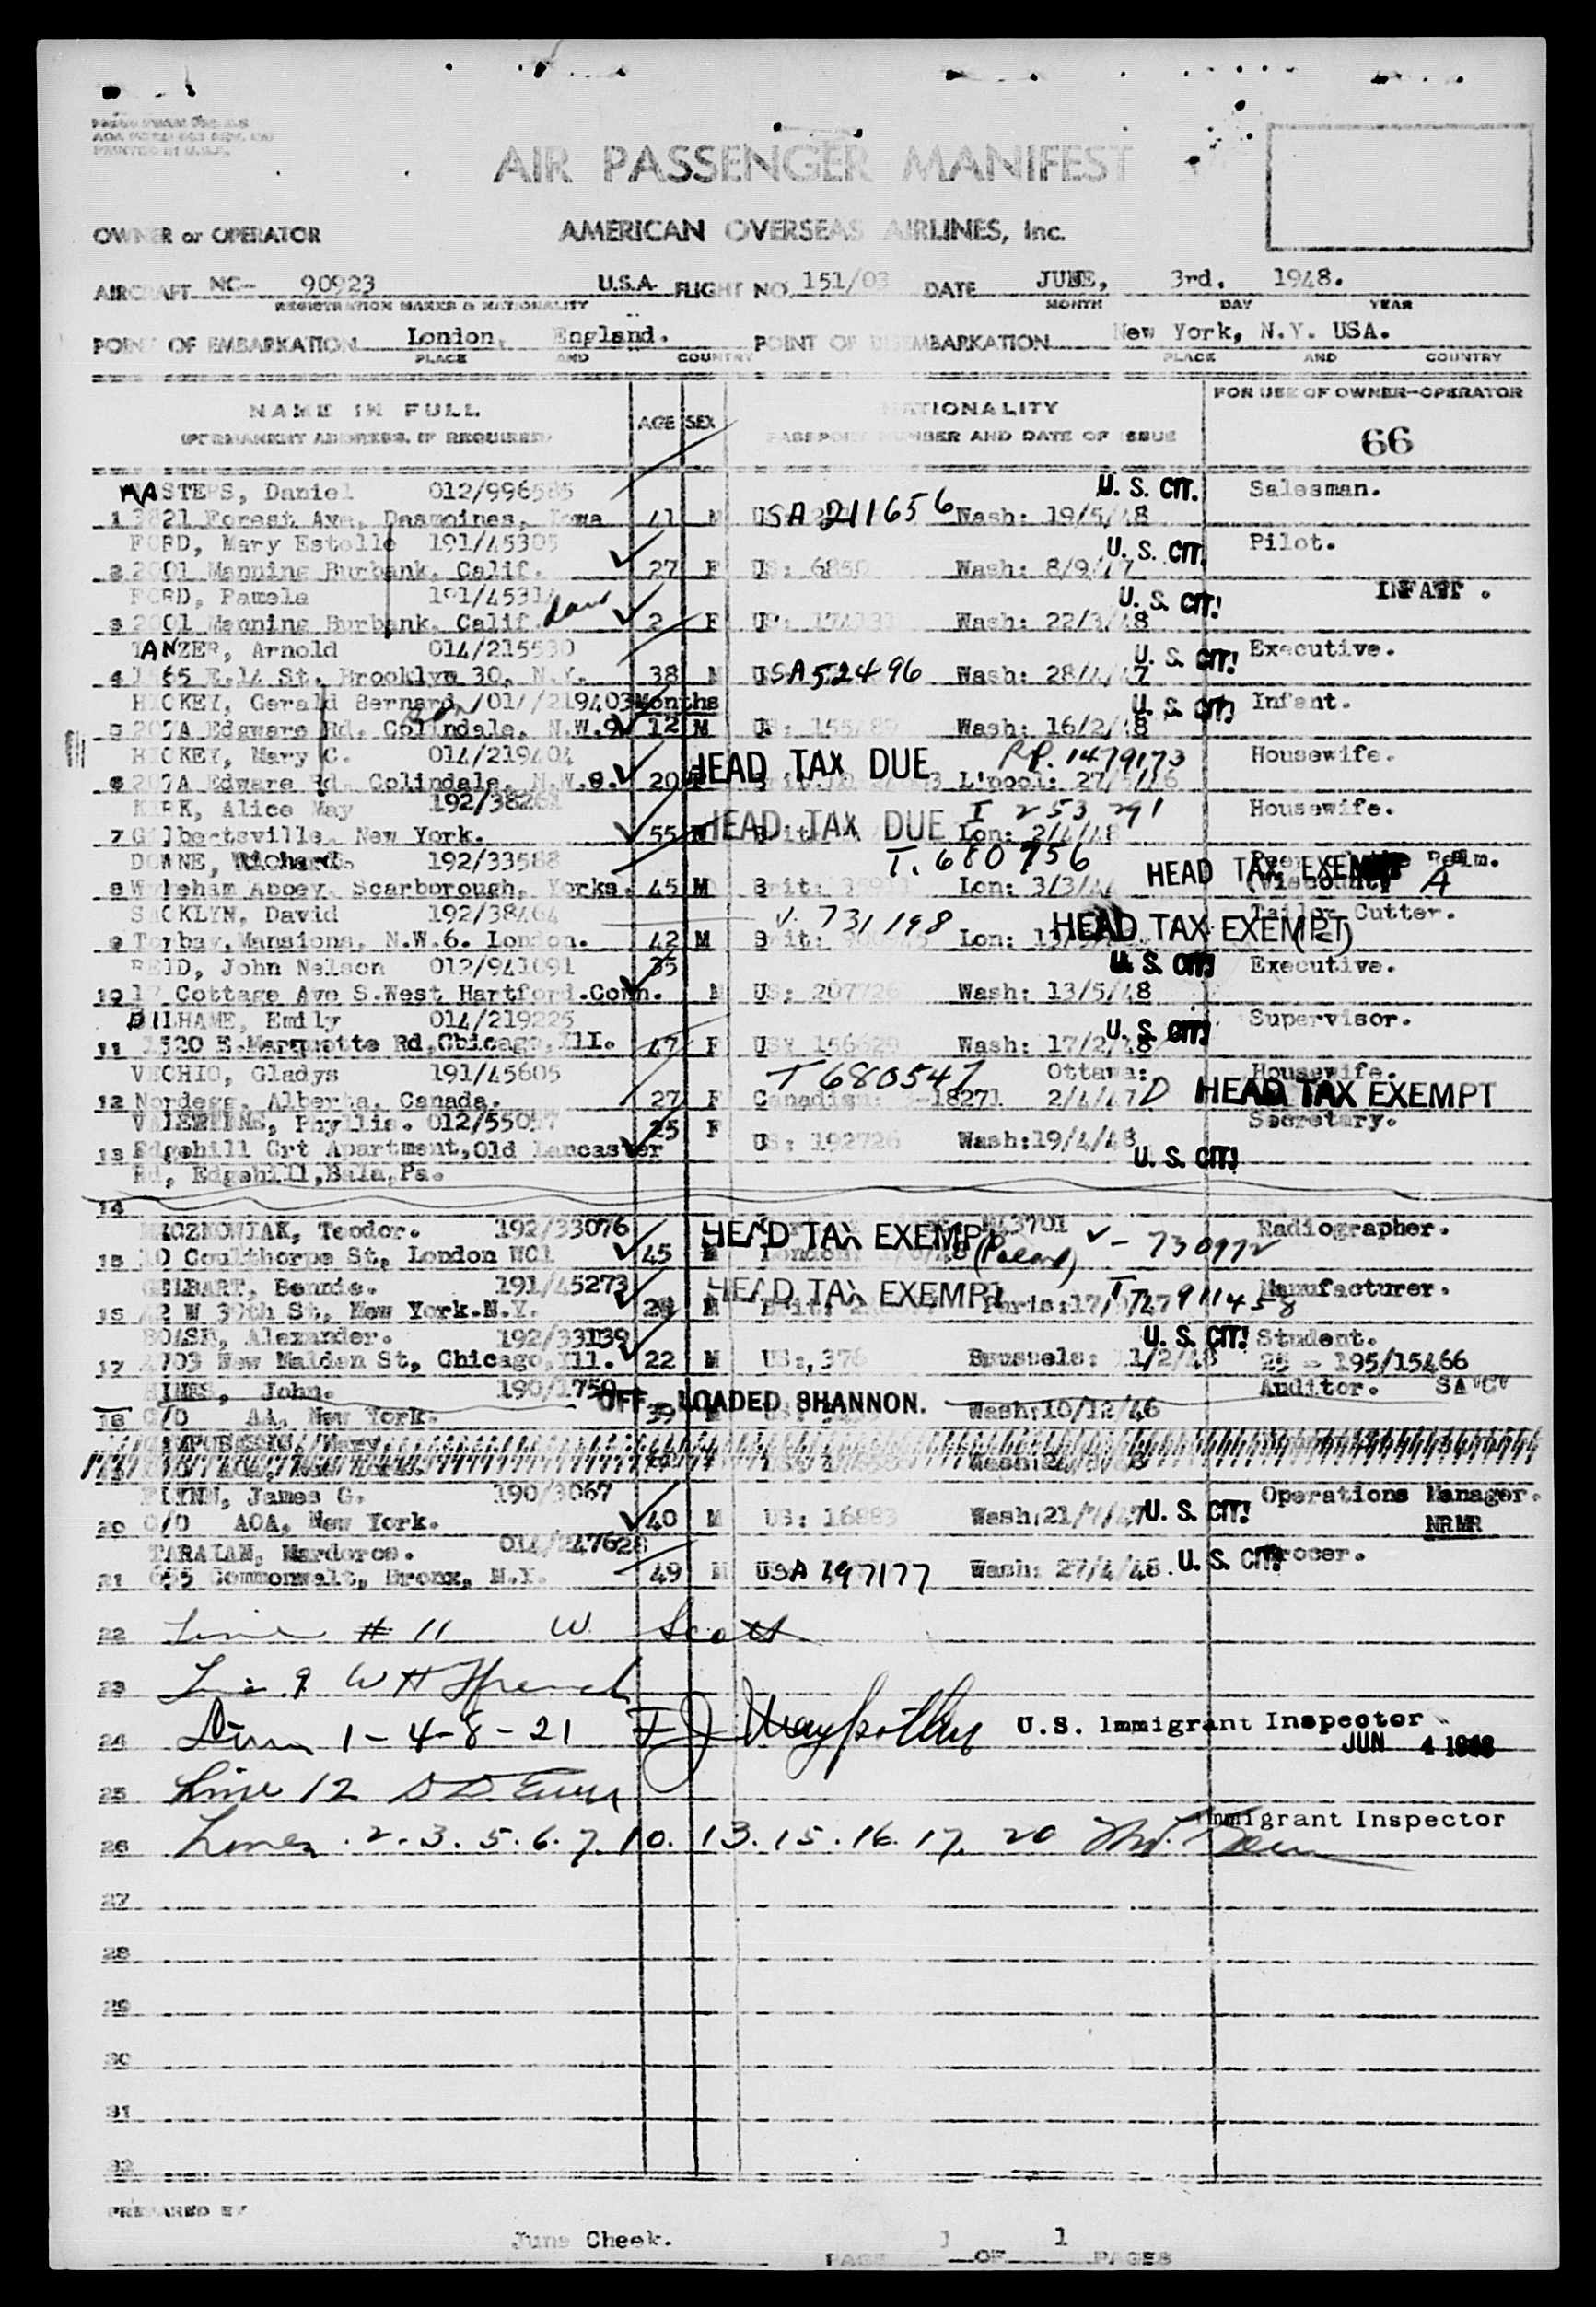 AIR PASSENGER MANIFEST
OWNER or OPERATOR AMERICAN OVERSEAS AIRLINES, Inc.
AIRCRAFT NC- 90923 U.S.A. FLIGHT NO. 151/03 DATE JUNE, 3rd. 1948.
REGISTRATION MARKS & NATIONALITY MONTH DAY YEAR
POINT OF EMBARKATION London, England. POINT OF DISEMBARKATION New York, N.Y. USA.
PLACE AND COUNTRY PLACE AND COUNTRY
NAME IN FULL AGE SEX NATIONALITY FOR USE OF OWNER-OPERATOR
(PERMANENT ADDRESS, IF REQUIRED) PASSPORT NUMBER AND DATE OF ISSUE 66
MASTERS, Daniel 012/996585 U. S. CIT. Salesman.
1 3821 Forest Ave, Desmoines, Iowa 41 M USA 211656 Wash: 19/5/48
FORD, Mary Estelle 191/45305 U. S. CIT. Pilot.
2 2001 Manning Burbank, Calif. 27 F US: 6850 Wash: 8/9/47
FORD, Pamela U. S. CIT! INFANT .
3 2001 Manning Burbank, Calif. 2 F Wash: 22/3/48
TANZER, Arnold 014/215530 U. S. CIT! Executive.
4 1565 E.14 St. Brooklyn 30, N.Y. 38 M USA 52496 Wash: 28/4/47
HICKEY, Gerald Bernard 014/219403 Months U. S. CIT! Infant.
5 207A Edgware Rd. Colindale, N.W.9 12 M Wash: 16/2/48
HICKEY, Mary C. 014/219404 HEAD TAX DUE RP. 1479173 Housewife.
6 207A Edware Rd. Colindale, N.W.9. 20 F L'pool: 27/
KIRK, Alice May 192/3826 HEAD TAX DUE I 253 291 Housewife.
7 Gilbertsville, New York. 55 Lon: 2/4/48
DOWNE, Richard. 192/33588 T. 680756 HEAD TAX EXEMPT Realm.
8 Wykeham Abbey, Scarborough, Yorks. 45 M Brit: Lon: 3/3/ (Viscount) A
SACKLYN, David 192/38464 V. 731198 HEAD TAX EXEMPT Tailor Cutter.
9 Torbay, Mansions, N.W.6. London. 42 M Brit: Lon:
REID, John Nelson 012/941091 35 U. S. CIT! Executive.
10 17 Cottage Ave S.West Hartford.Conn. M US: 207726 Wash: 13/5/48
DILHAME, Emily 014/219225 U. S. CIT! Supervisor.
11 1520 E.Marquette Rd,Chicago,Ill. 47 F US: 156629 Wash: 17/2/48
VECHIO, Gladys 191/45605 T 680547 Ottawa: Housewife.
12 Nordegg, Alberta, Canada. 27 F Canadian: -18271 2/4/47 D HEAD TAX EXEMPT
Phyllis. 012/550 25 F Secretary.
13 Edgehill Crt Apartment,Old Lancaster US: 192726 Wash:19/4/48 U. S. CIT!
Rd, Edgehill,Bala,Pa.
14
Teodor. 192/33076 HEAD TAX EXEMPT V - 730972 Radiographer.
15 10 Coulthorpe St, London WC1 45 M (Poland)
GILBART, Bennie. 191/45273 HEAD TAX EXEMPT T 911458 Manufacturer.
16 42 W 39th St, New York.N.Y. M Paris:17/
BOASE, Alexander. 192/33139 U. S. CIT! Student.
17 2703 New Malden St, Chicago,Ill. 22 M US:,376 Brussels: 11/2/48 25 - 195/15466
HINES, John. 190/1750 OFF - LOADED SHANNON. Auditor. SA"C"
18 C/O AA, New York. 39 Wash:10/12/46
19
FLYNN, James G. 190/3067 Operations Manager.
20 C/O AOA, New York. 40 M US: 16883 Wash:21/7/47 U. S. CIT! NRMR
TARAIAN, Mardoros. 014/247628 U. S. CIT! Grocer.
21 655 Commonwelt, Bronx, N.Y. 49 M USA 197177 Wash: 27/4/48.
22 Line # 11 W. Scott
23 Line 9 W H French
24 Lines 1-4-8-21 U.S. Immigrant Inspector
JUN 4 1948
25 Line 12
Immigrant Inspector
26 Lines . 2. 3. 5. 6. 7. 10. 13. 15. 16. 17. 20
27
28
29
30
31
32
PREPARED BY
June Cheek. PAGE 1 OF 1 PAGES